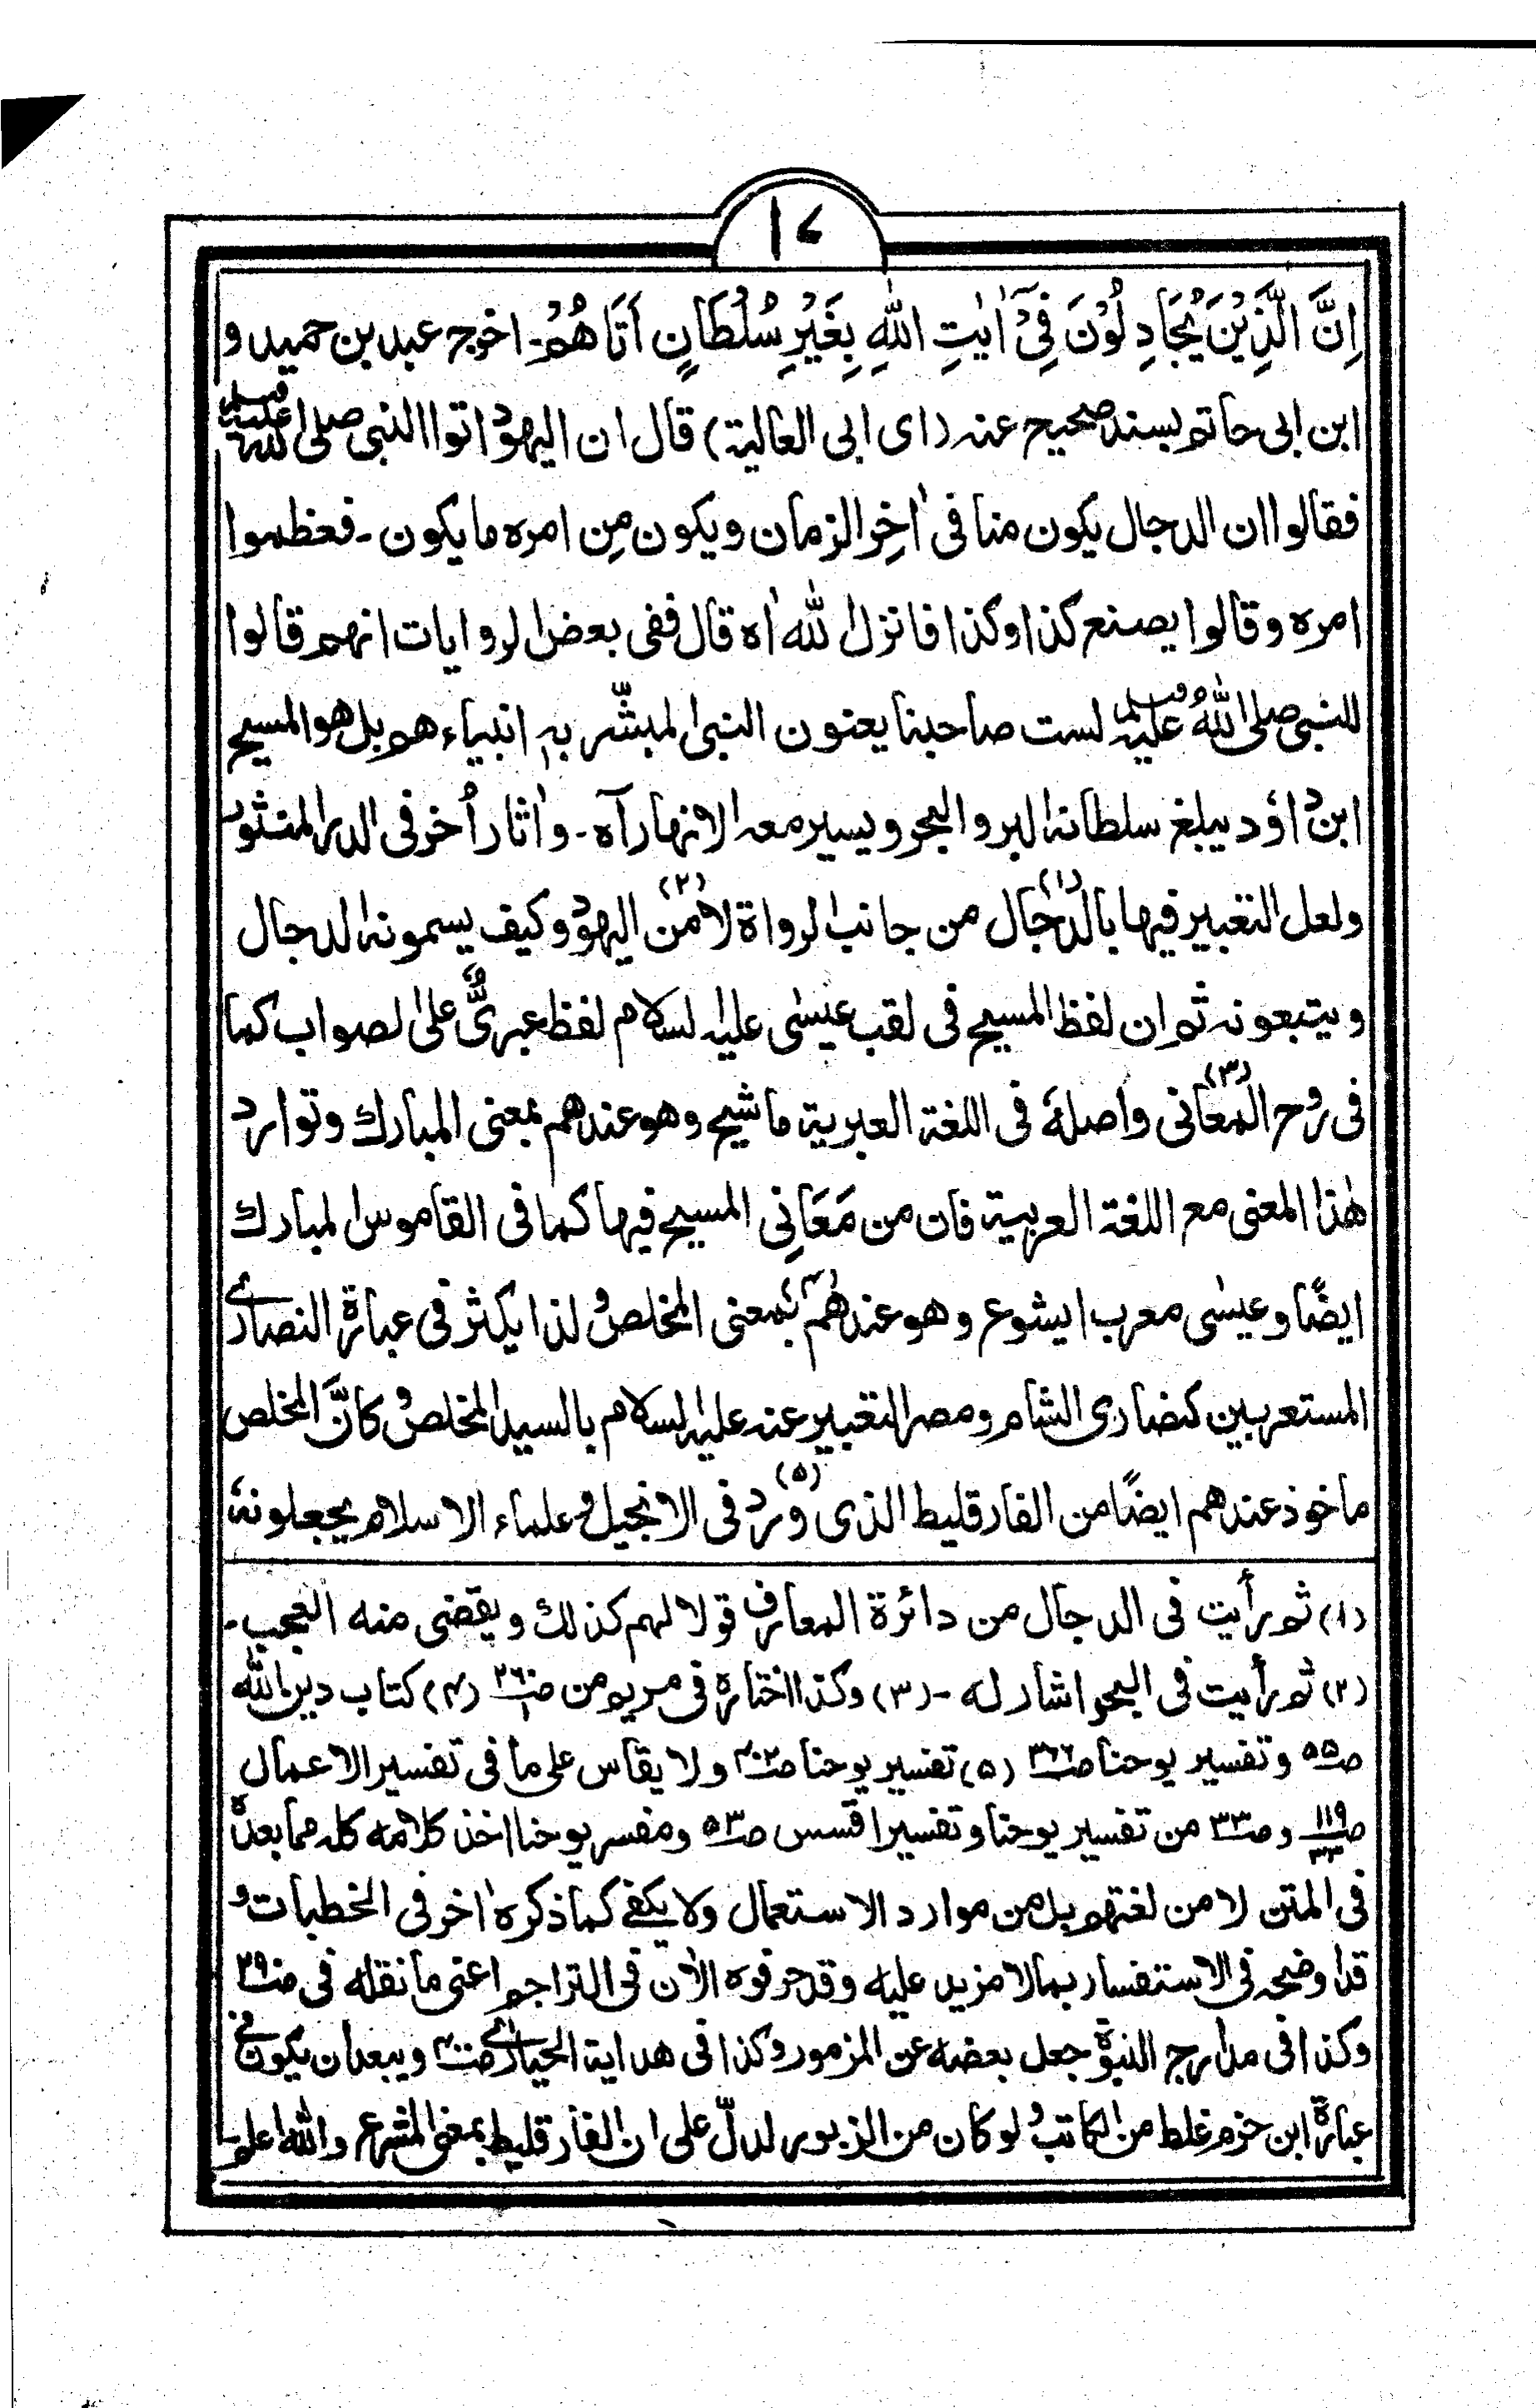 ۱۷
اِنَّ الَّذِيْنَ يُجَادِلُوْنَ فِيْٓ اٰيٰتِ اللّٰهِ بِغَيْرِ سُلْطَانٍ اَتَاهُمْ۔ اخرج عبد بن حميد و
ابن ابى حاتم بسند صحيح عنه (اى ابى العالية) قال ان اليهود اتوا النبى صلى الله عليه وسلم
فقالوا ان الدجال يكون منا فى اٰخِر الزمان ويكون مِن امره ما يكون۔ فعظموا
امره وقالوا يصنع كذا وكذا فانزل الله اٰه قال ففى بعض الروايات انهم قالوا
للنبى صلى اللهُ عليه وسلم لست صاحبنا يعنون النبى المبشّر به انبياء هم بل هو المسيح
ابن داوٗد يبلغ سلطانه البر والبحر ويسير معه الانهار آه۔ واٰثار اُخر فى الدر المنثور
ولعل التعبير فيها بالدجال (۱) من جانب الرواة لا من (۲) اليهود وكيف يسمونه الدجال
ويتبعونه ثم ان لفظ المسيح فى لقب عيسٰى عليه السلام لفظ عبرىٌّ على الصواب كما
فى روح المعانى (۳) واصلهٗ فى اللغة العبرية ماشيح وهو عندهم بمعنى المبارك وتوارد
هٰذا المعنى مع اللغة العربية فان من مَعَانِى المسيح فيها كما فى القاموس المبارك
ايضًا وعيسٰى معرب ايشوع وهو عندهم (۴) بمعنى المخلص ولذا يكثر فى عبارة النصارٰى
المستعربين كنصارى الشام ومصر التعبير عنه عليه السلام بالسيد المخلص وكانَّ المخلص
ماخوذ عندهم ايضًا من الفارقليط الذى (۵) ورد فى الانجيل وعلماء الاسلام يجعلونهٗ
(۱) ثم رأيت فى الدجال من دائرة المعارف قولا لهم كذلك ويقضى منه العجب۔
(۲) ثم رأيت فى البحر اشار له۔ (۳) وكذا اختاره فى مريم من ص۲۶۰/۱ (۴) كتاب دين الله
ص۵۵ وتفسير يوحنا ص۳۶۶ (۵) تفسير يوحنا ص۴۰۲ ولا يقاس على ما فى تفسير الاعمال
ص۱۱۹/۳۳ وص۳۳ من تفسير يوحنا وتفسير افسس ص۵۳ ومفسر يوحنا اخذ كلامه كله مما بعدهٗ
فى المتن لا من لغتهم بل من موارد الاستعمال ولا يكفى كما ذكره اٰخر فى الخطبات و
قد اوضحه فى الاستفسار بما لا مزيد عليه وقد حرفوه الاٰن فى التراجم اعنى ما نقله فى ص۳۹
وكذا فى مدارج النبوة جعل بعضه عن المزمور وكذا فى هداية الحيارٰى ويبعد ان يكون فى
عبارة ابن حزم غلط من الكاتب ولو كان من الزبور لدلّ على ان الفارقليط بمعنى المشرع والله اعلم۔